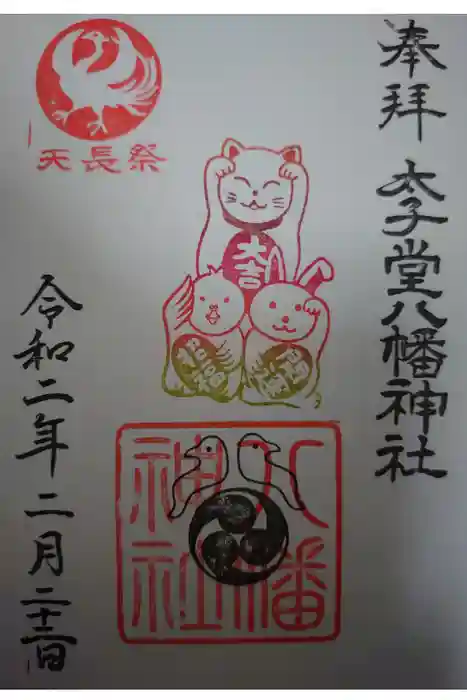 奉拝 太子堂八幡神社
天長祭
大吉
招福
開運
八幡
神社
令和二年 二月 二十三日